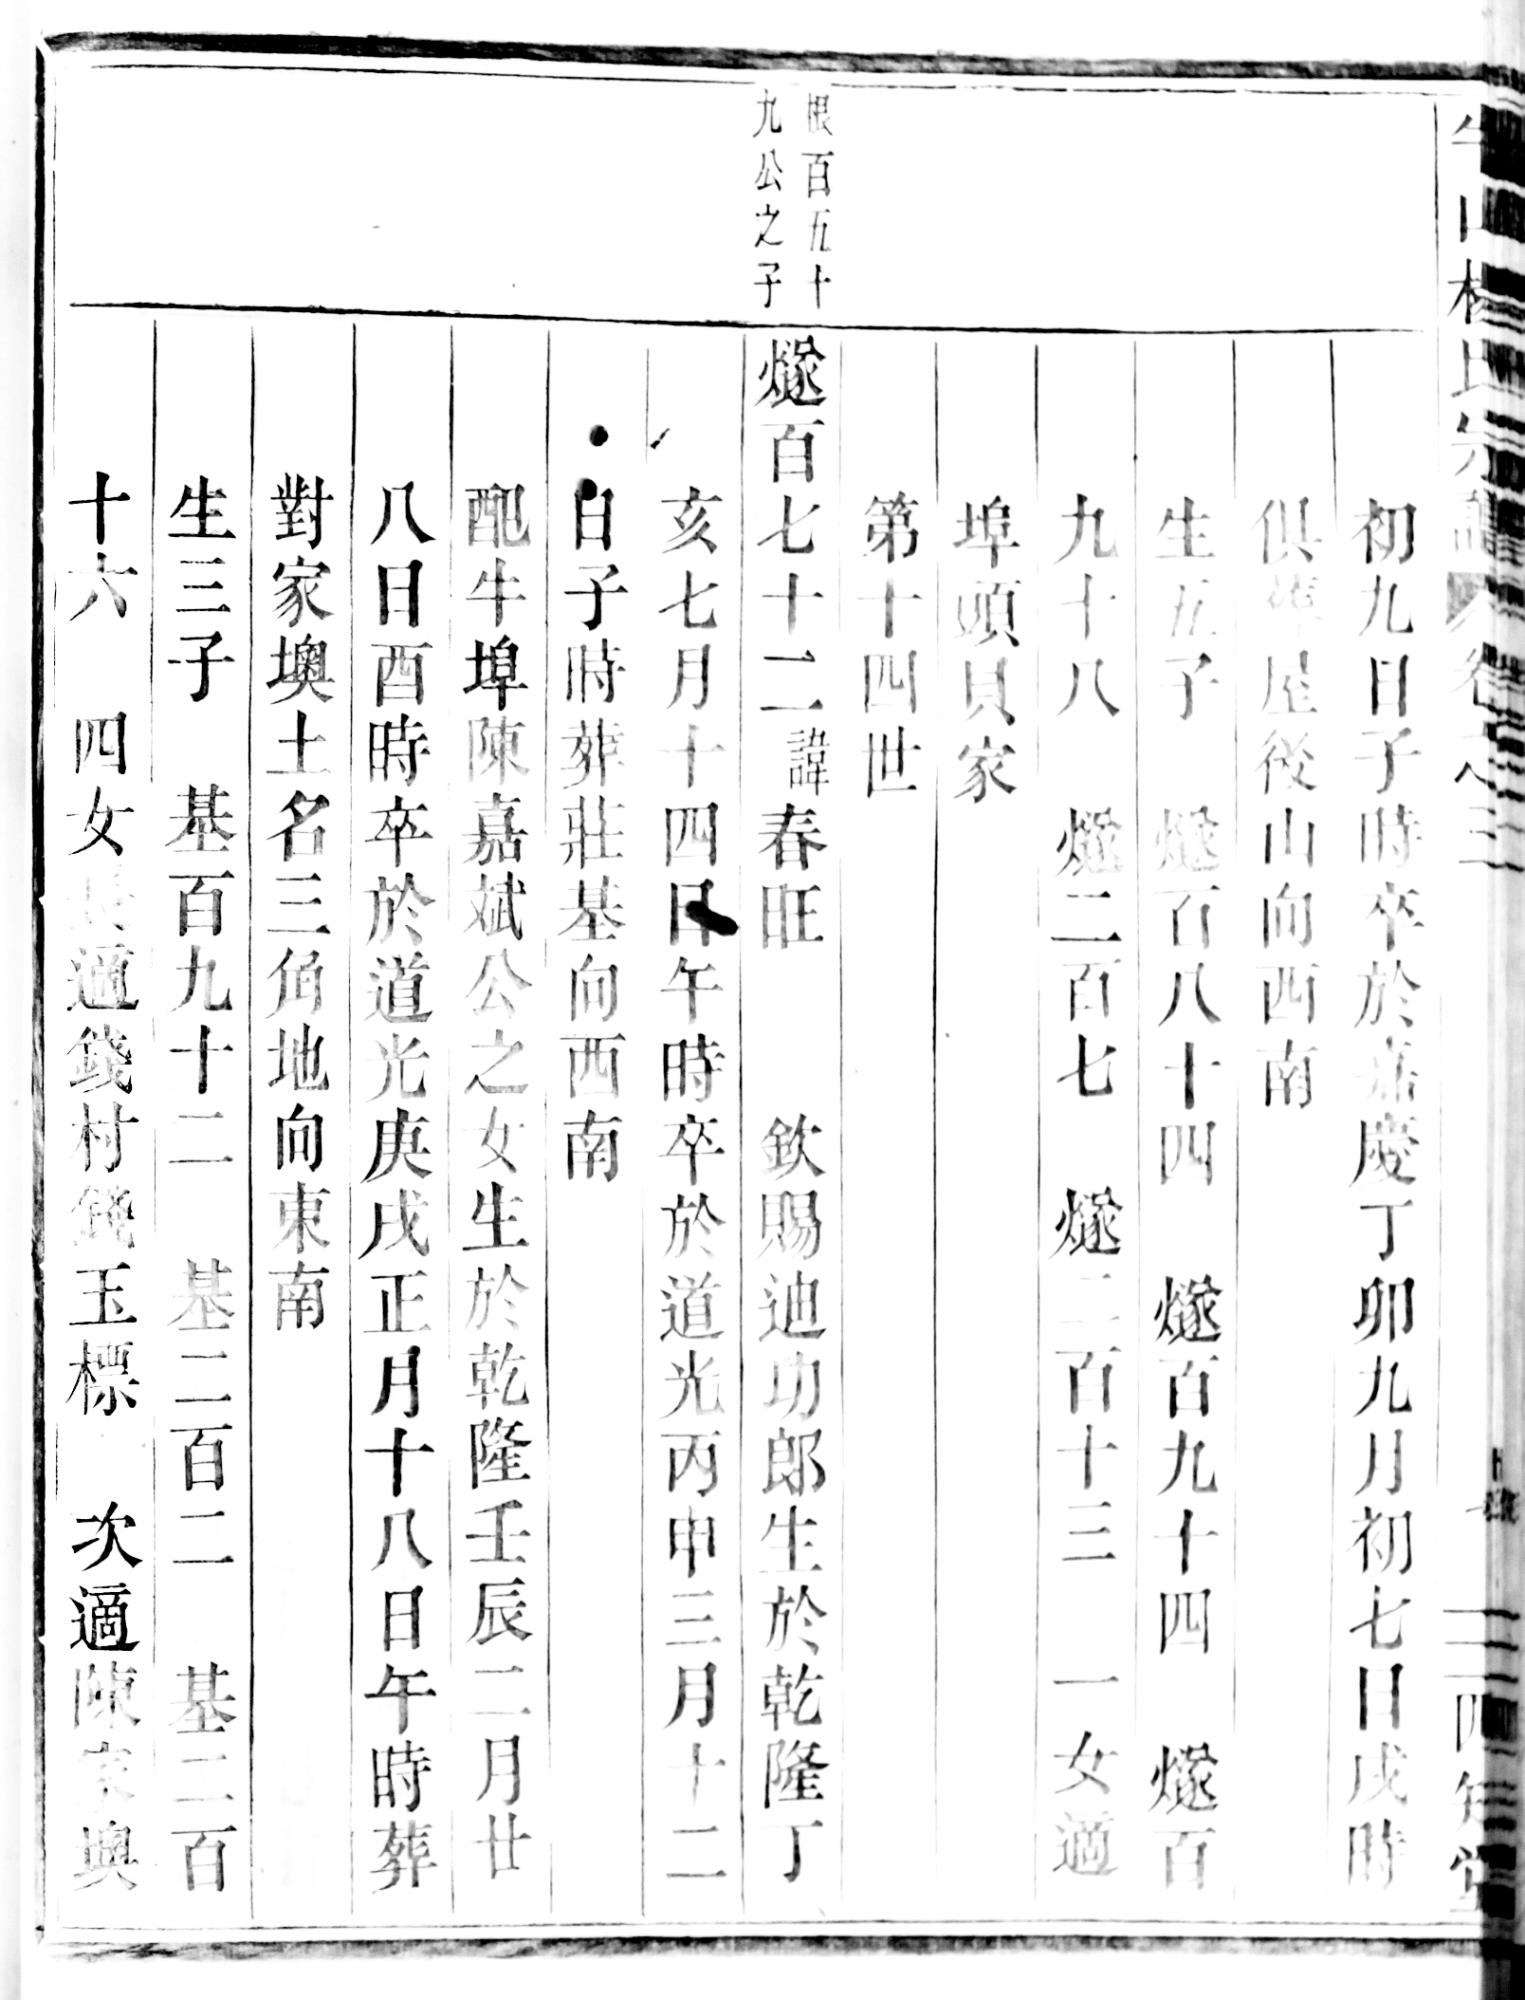 初九日子時卒於嘉慶丁卯九月初七日戌時
俱葬屋後山向西南
生五子 燧百八十四 燧百九十四 燧百
九十八 燧二百七 燧二百十三 一女適
埠頭貝家
第十四世
根百五十
九公之子
燧百七十二諱春旺 欽賜迪功郎生於乾隆丁
亥七月十四日午時卒於道光丙申三月十二
日子時葬莊基向西南
配牛埠陳嘉斌公之女生於乾隆壬辰二月廿
八日酉時卒於道光庚戌正月十八日午時葬
對家墺土名三角地向東南
生三子 基百九十二 基二百二 基二百
十六 四女長適錢村錢玉標 次適陳家墺